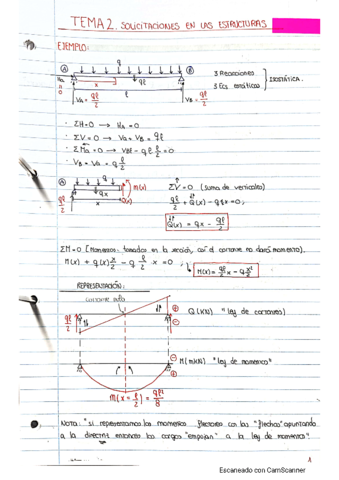 TEMA 2. SOLICITACIONES EN LAS ESTRUCTURAS
EJEMPLO:
q
A B
HA 3 Reacciones
0 x 3 Ecs. estáticas ISOSTÁTICA.
ℓ
VA = qℓ/2 VB = qℓ/2
· ΣH=0 → HA = 0
· ΣV=0 → VA + VB = qℓ
· ΣMA=0 → VBℓ - qℓ ℓ/2 = 0
· VB = VA = q ℓ/2
A q M(x) ΣV=0 (suma de verticales)
qx
qℓ/2 x Q(x) qℓ/2 + Q(x) - qx = 0;
Q(x) = qx - qℓ/2
ΣM=0 [Momentos tomados en la sección, así el cortante no dará momento].
M(x) + q(x) x/2 - q ℓ/2 x = 0; M(x) = qℓ/2 x - q x²/2
REPRESENTACIÓN:
cortante nulo
Q(KN) "Ley de cortantes"
qℓ/2
M(mKN) "Ley de momentos"
M(x = ℓ/2) = qℓ²/8
Nota: "si representamos los momentos flectores con las "flechas" apuntando
a la directriz entonces las cargas "empujan" a la ley de momentos".
1
Escaneado con CamScanner